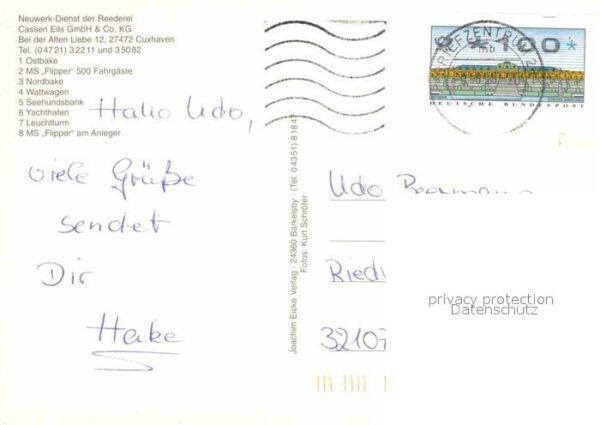 Neuwerk-Dienst der Reederei
Cassen Eils GmbH & Co. KG
Bei der Alten Liebe 12, 27472 Cuxhaven
Tel. (0 47 21) 3 22 11 und 3 50 82
1 Ostbake
2 MS „Flipper" 500 Fahrgäste
3 Nordbake
4 Wattwagen
5 Seehundsbank
6 Yachthafen
7 Leuchtturm
8 MS „Flipper" am Anleger
Hallo Udo,
viele Grüße
sendet
Dir
Joachim Eicke Verlag · 24360 Barkelsby · (Tel. 0 43 51) 8 18 47
Fotos: Kurt Schröter
BRIEFZENTRUM
100
DEUTSCHE BUNDESPOST
Udo
Ried
32107
privacy protection
Datenschutz